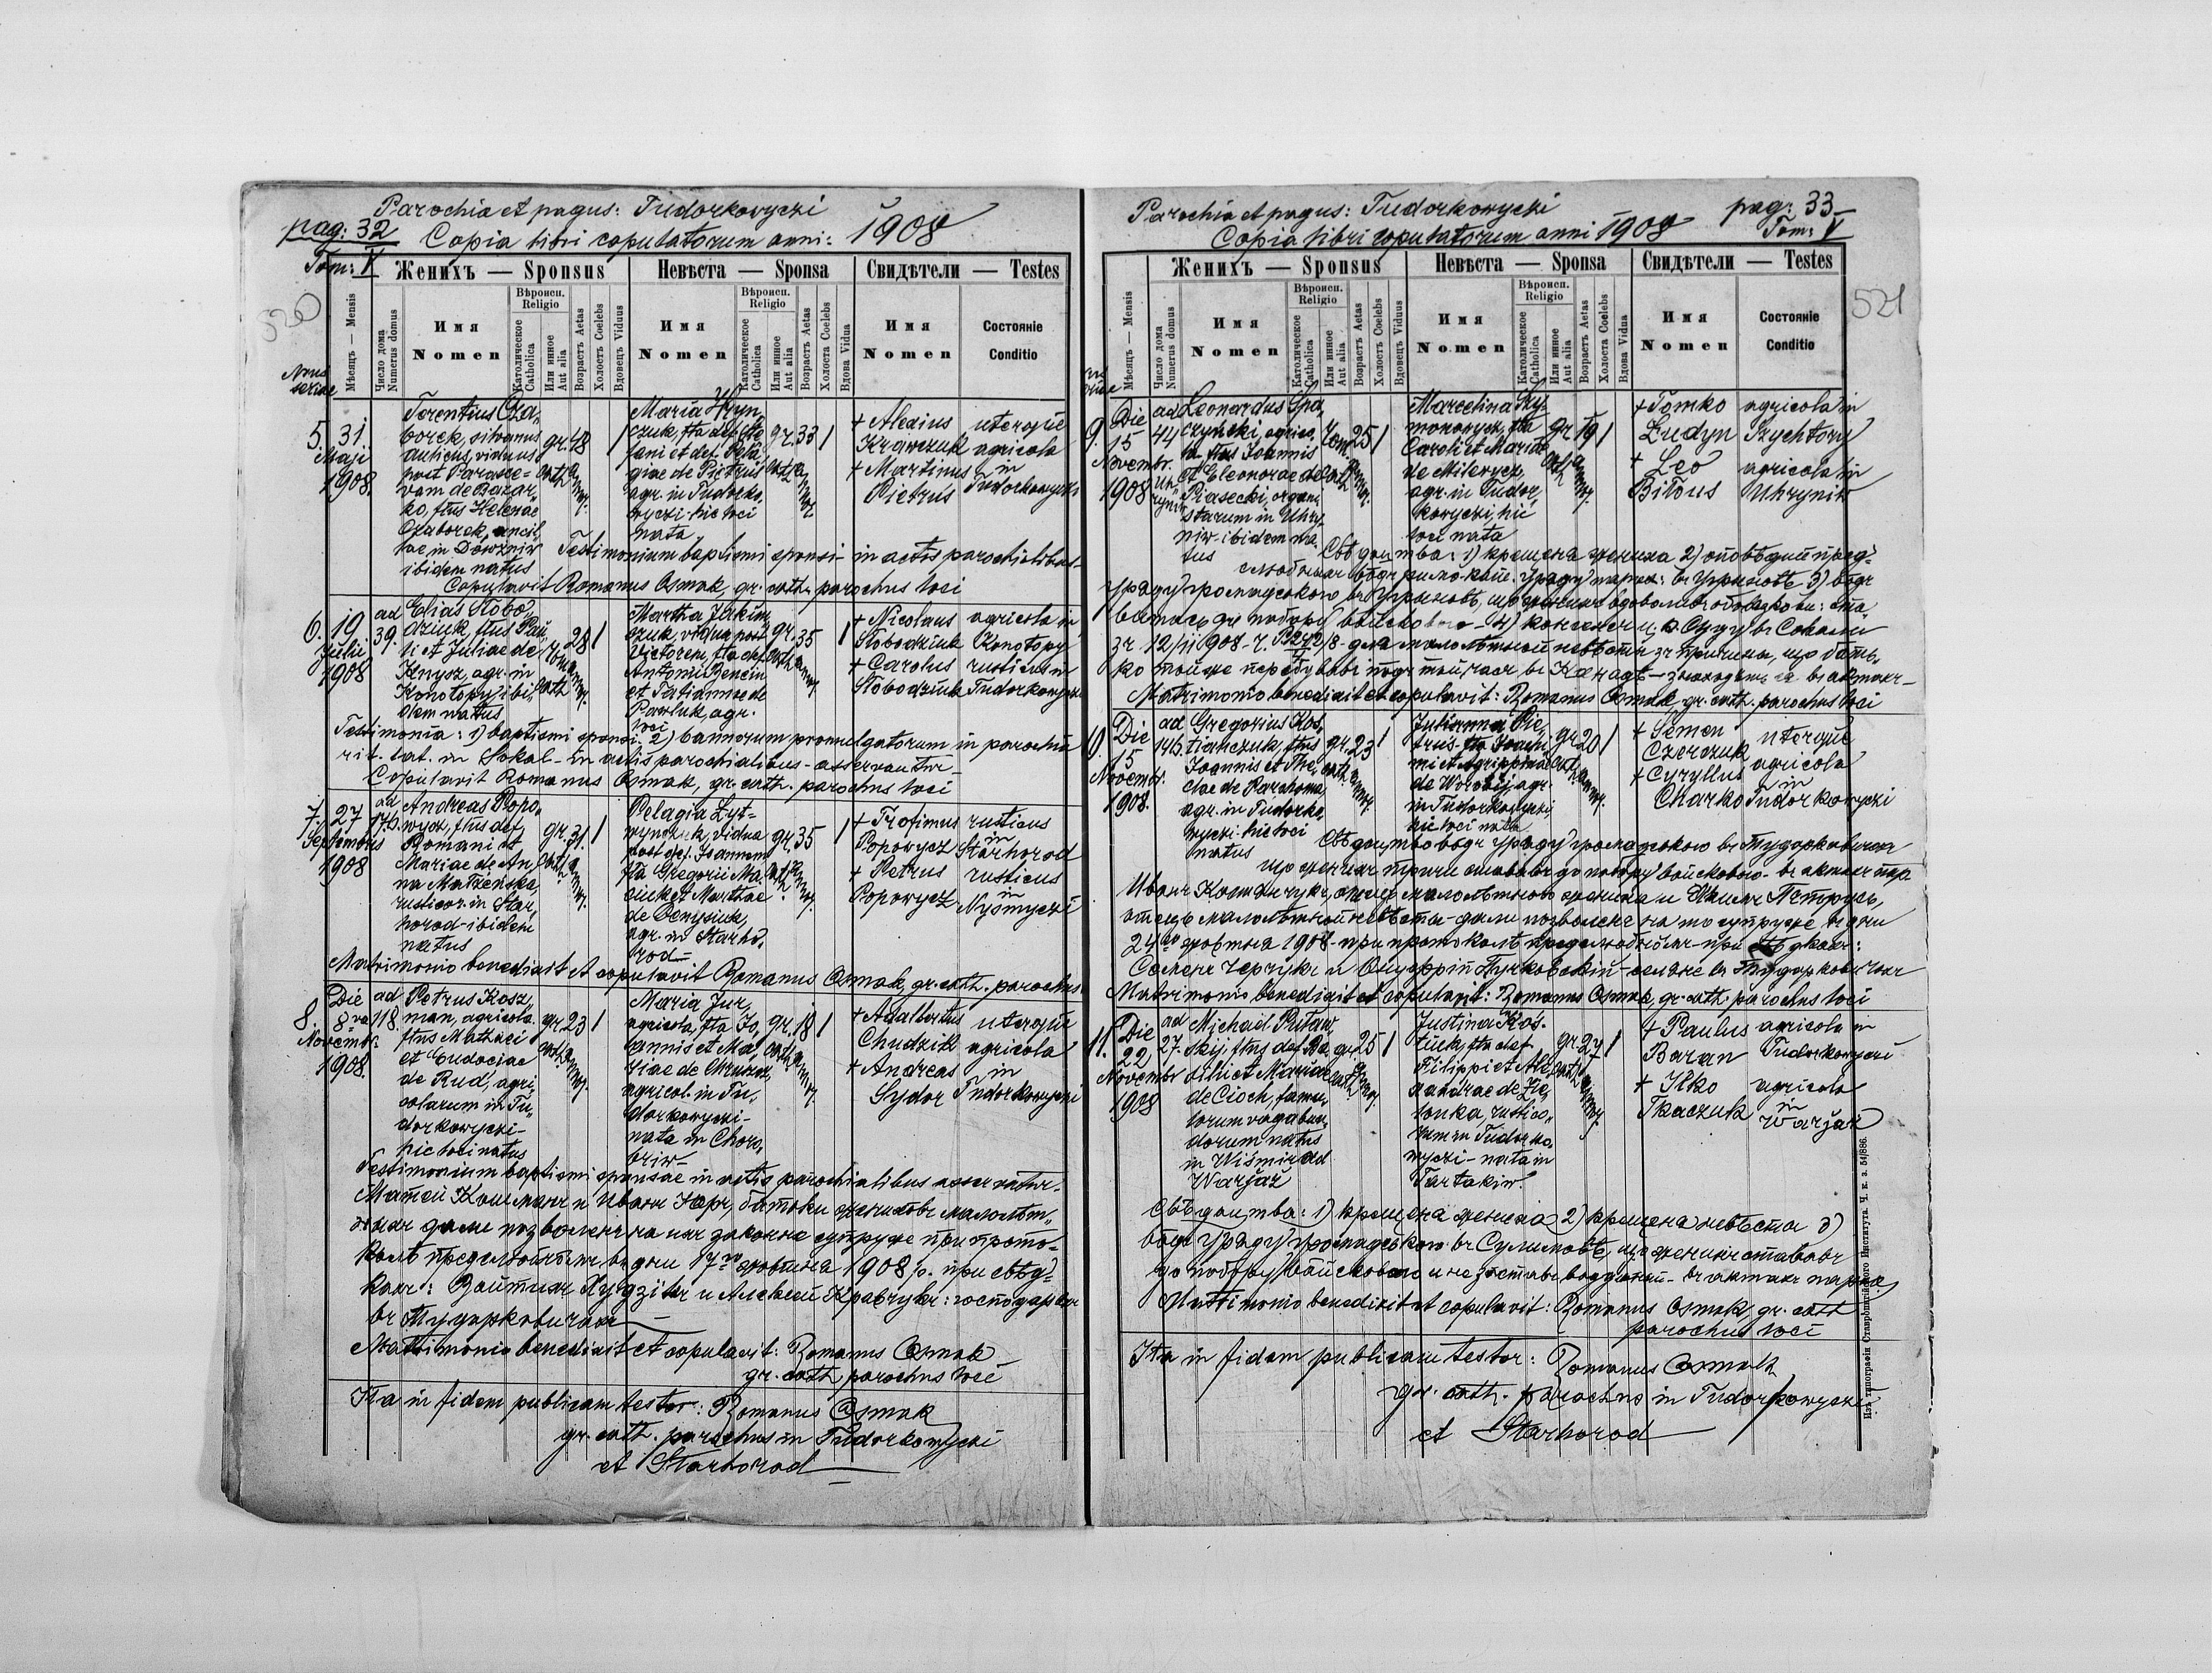 Parochia et pagus: Tudorkowyczi
pag: 32 Copia libri copulatorum anni: 1908
Tom: V
520
Женихъ — Sponsus Невѣста — Sponsa Свидѣтели — Testes
Мѣсяцъ — Mensis
Число дома Numerus domus
Имя Nomen
Вѣроисп. Religio
Католическое Catholica
Или инное Aut alia
Возрастъ Aetas
Холостъ Coelebs
Вдовецъ Viduus
Имя Nomen
Вѣроисп. Religio
Католическое Catholica
Или инное Aut alia
Возрастъ Aetas
Холоста Coelebs
Вдова Vidua
Имя Nomen
Состояніе Conditio
5. 31. Maji 1908.
Terentius Cza„
borek, silvanus
viduus
post Parasce=
vam de Bazar„
ko, flius Helenae
Czaborek, ancil„
lae in Dówżniw
ibidem natus
gr. cath. 48
Maria Hryn„
czuk, flia def. Ste„
fani et def. Pela„
giae de Pietruś
agr. in Tudorko„
wyczi hic loci
nata
gr. cath. 33
+ Alexius
Krawczuk
+ Martinus
Pietrus
uterque
agricola
in
Tudorkowyczi
Testimonium baptismi sponsi — in actis parochialibus —
Copulavit Romanus Osmak, gr. cath. parochus loci
6. 19 Julii 1908
ad 39.
Elias Słobo„
dziuk, flius Pau„
li et Juliae de
Knysz, agr. in
Konotopy ibi„
dem natus
Rom. cath. 28
Martha Jakim„
czuk, vidua post
Victorem, flia def.
Antonii Bencin
et Tatiannae de
Pawluk, agr.
loci
gr. cath. 35
+ Nicolaus
Słobodziuk
+ Carolus
Słobodziuk
agricola in
Konotopy
rusticus in
Tudorkowyczi
Testimonia: 1) baptismi sponsi 2) bannorum promulgatorum in parochia
rit. lat. in Sokal — in actis parochialibus — asservantur —
Copulavit Romanus Osmak, gr. cath. parochus loci
7. 27 Septembris 1908
ad 176.
Andreas Popo„
wycz, flius def.
Romani et
Mariae de An„
na Małżeńska,
rusticor. in Star„
horod — ibidem
natus
gr. cath. 31
Pelagia Łyt=
wynczuk, vidua
post def. Joannem
flia Gregorii Ma„
ciuk et Marthae
de Denysiuk,
agr. in Starho„
rod —
gr. cath. 35
+ Trofimus
Popowycz
+ Petrus
Popowycz
rusticus
in
Starhorod
rusticus
in
Nyśmyczi
Matrimonio benedixit et copulavit Romanus Osmak, gr. cath. parochus.
8. Die 8va Novembr. 1908.
ad 118.
Petrus Kosz„
man, agricola
flius Mathaei
et Eudociae
de Rud, agri„
colarum in Tu„
dorkowyczi —
hic loci natus
gr. cath. 23
Maria Jur,
agricola, flia Jo„
annis et Ma„
riae de
agricol. in Tu„
dorkowyczi —
nata in Choro„
briw —
gr. cath. 18
+ Adalbertus
Chudzik
+ Andreas
Sydor
uterque
agricola
in
Tudorkowyczi
Testimonium baptismi sponsae in actis parochialibus asservatur —
Матей Кошманъ и Иванъ Юръ, батьки женихôвъ малолѣт„
ныхъ дали позволеня на ихъ законне супруже при прото=
колѣ предслюбнôмъ въ дни 17го жовтня 1908 р. при свѣд=
кахъ: Войтихъ Худзікъ и Алексій Кравчукъ: господари
въ Тудорковичахъ —
Matrimonio benedixit et copulavit: Romanus Osmak
gr. cath. parochus loci
Ita in fidem publicam testor: Romanus Osmak
gr. cath. parochus in Tudorkowyczi
et Starhorod
Parochia et pagus: Tudorkowyczi pag: 33
Copia libri copulatorum anni 1908 Tom: V
521
Женихъ — Sponsus Невѣста — Sponsa Свидѣтели — Testes
Мѣсяцъ — Mensis
Число дома Numerus domus
Имя Nomen
Вѣроисп. Religio
Католическое Catholica
Или инное Aut alia
Возрастъ Aetas
Холостъ Coelebs
Вдовецъ Viduus
Имя Nomen
Вѣроисп. Religio
Католическое Catholica
Или инное Aut alia
Возрастъ Aetas
Холоста Coelebs
Вдова Vidua
Имя Nomen
Состояніе Conditio
9. Die 15 Novembr. 1908
ad 44 Uhryniw
Leonardus Spa„
czyński, agrico„
la flius Joannis
et Eleonorae de
Piasecki, organi„
starum in Uhry„
niw ibidem na„
tus
Rom. cath. 25
Marcelina Szy„
monowycz, flia
Caroli et Mariae
de Milewycz,
agr. in Tudor„
kowyczi, hic
loci nata
gr. cath. 19
+ Tomko
Łudyn
+ Leo
Biłous
agricola in
Szychtory
agricola in
Uhryniw
Свѣдоцтва: 1) крещеня жениха 2) оповѣдий пред=
слюбныхъ вôдъ римо-кат. уряду парох: въ Угриновѣ 3) вôдъ
уряду громадского въ Угриновѣ, що женихъ вдоволивъ обовязкови: ста„
витись до побору войскового — 4) консенсъ ц. к. Суду въ Сокали
зъ 12/11 1908. Ч. P 242/8 для малолѣтной невѣсты зъ причины, що бать„
ко тойже перебувавъ пôдъ той часъ въ Канадѣ — знаходятся въ актахъ —
Matrimonio benedixit et copulavit: Romanus Osmak, gr. cath. parochus loci
10. Die 15 Novembr. 1908.
ad 146.
Gregorius Kos„
tianczuk, flius
Joannis et The„
clae de Karahoma,
agr. in Tudorko„
wyczi hic loci
natus
gr. cath. 23
Julianna Pie„
truś, flia Joachi„
mi et Agrippinae
de Worobij agr.
in Tudorkowyczi,
hic loci nata
gr. cath. 20
+ Semen
Czerczuk
+ Cyryllus
Charko
uterque
agricola
in
Tudorkowyczi
Свѣдоцтво вôдъ уряду громадского въ Тудорковичахъ
що женихъ тричи ставивъ до побору войскового — въ актахъ пар.
отецъ малолѣтного жениха и Якимъ Петрусь,
отецъ малолѣтной невѣсты — дали позволеня на то супруже, въ дни
24го жовтня 1908 — при протоколѣ предслюбнôмъ — при свѣдкахъ:
Семенъ Черчукъ и Онуфрій — селяне въ Тудорковичахъ
Matrimonio benedixit et copulavit: Romanus Osmak, gr. cath. parochus loci
11. Die 22 Novembr 1908
ad 27.
Michael Rutaw„
skij, flius def. Ba„
silii et Mariae
de Cioch, famu„
lorum vagabun„
dorum natus
in Wiśmir ad
Warjaż
gr. cath. 25
Justina Koś„
tiuk, flia def.
Filippi et Ale„
xandrae de Zie„
lonka, rustico„
rum in Tudorko„
wyczi — nata in
Tartakiw.
gr. cath. 27
+ Paulus
Baran
+ Ilko
Tkaczuk
agricola in
Tudorkowyczi
agricola
in
Warjaż
Свѣдоцтва: 1) крещеня жениха 2) крещеня невѣсты 3)
вôдъ уряду громадского въ Сулимовѣ, що женихъ ставивъ
до побору войскового и не зôставъ вôдданий — въ актахъ парох.
Matrimonio benedixit et copulavit: Romanus Osmak, gr. cath
parochus loci
Ita in fidem publicam testor: Romanus Osmak
gr. cath. parochus in Tudorkowyczi
et Starhorod
Изъ типографіи Ставропигійского Института. Ч. к. з. 54/886.